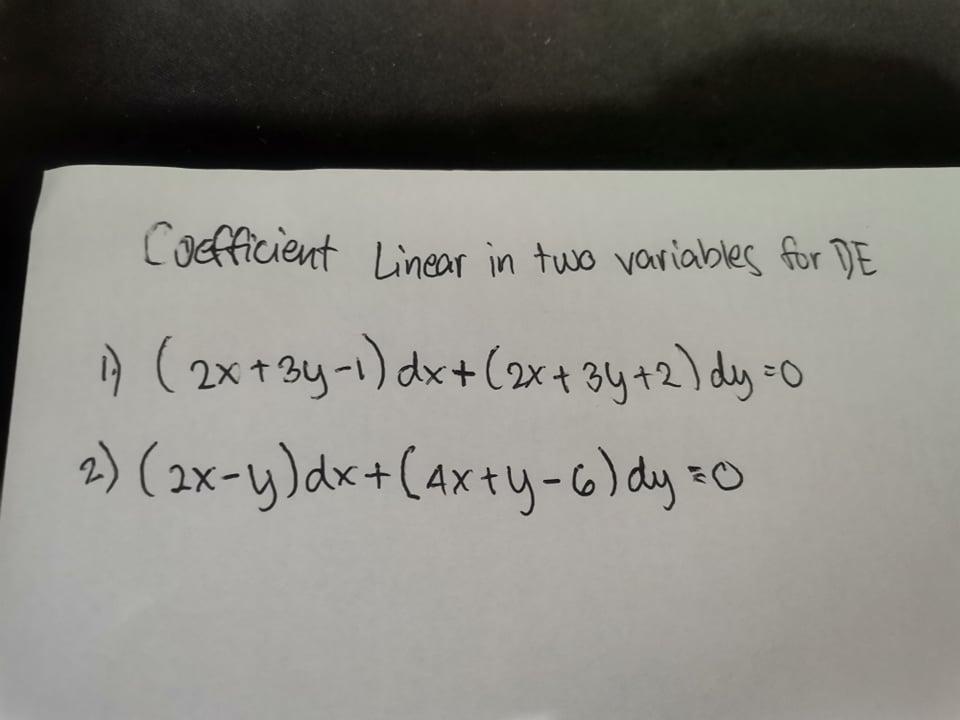 Coefficient Linear in two variables for DE
1) (2x+3y-1)dx+(2x+3y+2)dy=0
2) (2x-y)dx+(4x+y-6)dy=0